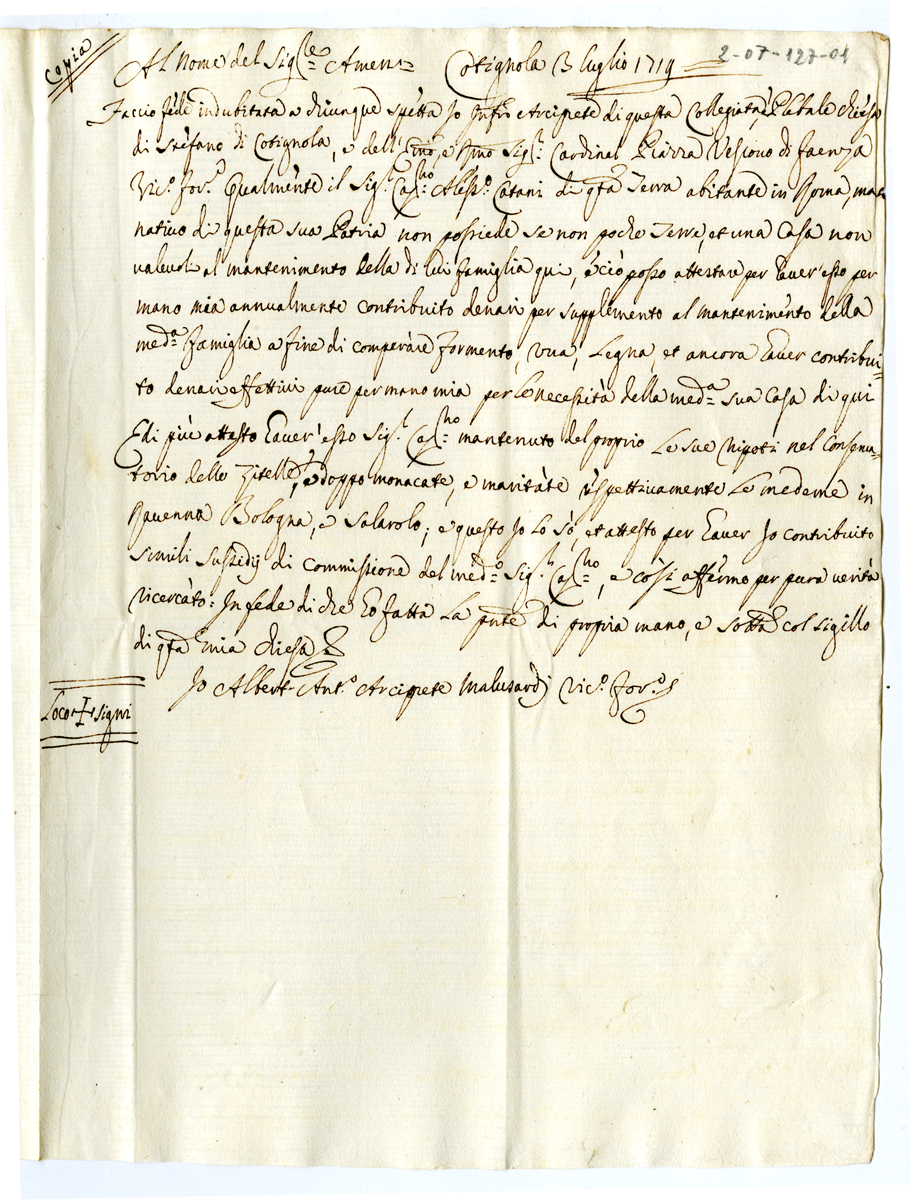 Copia
2-07-127-01
Al Nome del Sig.re Amen= Cotignola 3 luglio 1719
Faccio fede indubitata a chiunque spetta Io Infro Arciprete di questa Collegiata, e Plebale Chiesa
di Stefano di Cotignola, e dell' Emo, e Rmo Sig.r Cardinal Piazza Vescovo di Faenza
Vic.o For.o Qualmente il Sig.r Cap.no Aless.o Catani di qta Terra abitante in Roma, ma
nativo di questa sua Patria non possiede se non poche Terre, et una Casa non
valevoli al mantenimento della di lui famiglia qui, e ciò posso attestare per haver esso per
mano mia annualmente contribuito denari per supplemento al mantenimento della
med.a famiglia a fine di comperare formento, Uua, Legna, et ancora haver contribui=
to denari effettivi pure per mano mia per le necessità della med.a sua Casa di qui
E di più attesto haver' esso Sig.r Cap.no mantenuto del proprio le sue Nipoti nel Conserua=
torio delle Zitelle, e doppo monacate, e maritate respettivamente le medeme in
Ravenna Bologna, e Salarolo; e questo Io lo sò, et attesto per haver Io contribuito
simili sussidij di commissione del med.o Sig.r Cap.no, e così affermo per pura verità
ricercato: In fede di che hò fatta la pnte di propria mano, e sotta col sigillo
di qta mia chiesa
Io Albert. Ant.o Arciprete Malusardj Vic.o For.o
Loco + signi